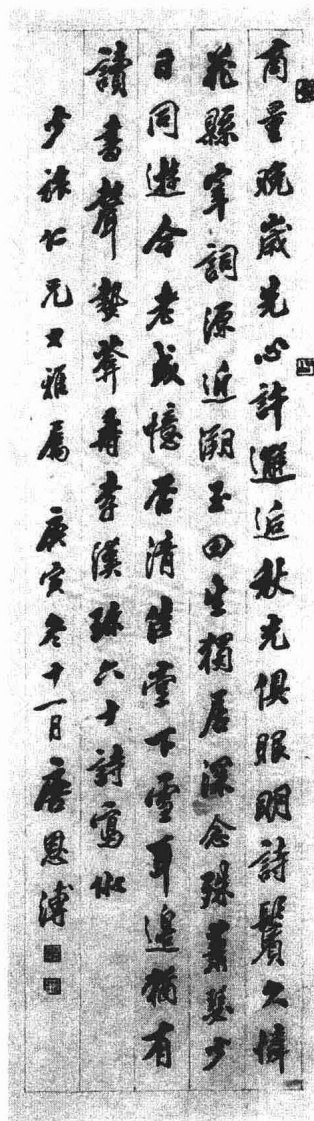 商量晚歲先心許邂逅秋光俱眼明詩鬢久憐
花縣宰詞源近溯玉田生獨居深念殊蕭瑟少
日同遊今老成憶否清佳堂下雪耳邊猶有
讀書聲蟄葊壽李漢珎六十詩寫似
少仁兄大雅屬 庚寅冬十一月唐恩溥